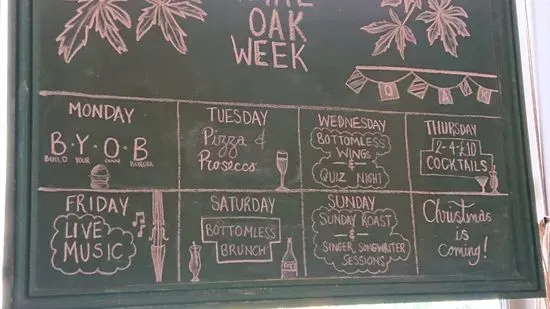 OAK
WEEK
OAK
MONDAY
B·Y·O·B
BUILD YOUR OWN BURGER
TUESDAY
Pizza &
Prosecco
WEDNESDAY
BOTTOMLESS
WINGS
&
QUIZ NIGHT
THURSDAY
2-4-£10
COCKTAILS
FRIDAY
LIVE
MUSIC
SATURDAY
BOTTOMLESS
BRUNCH
SUNDAY
SUNDAY ROAST
&
SINGER, SONGWRITER
SESSIONS
Christmas
is
Coming!